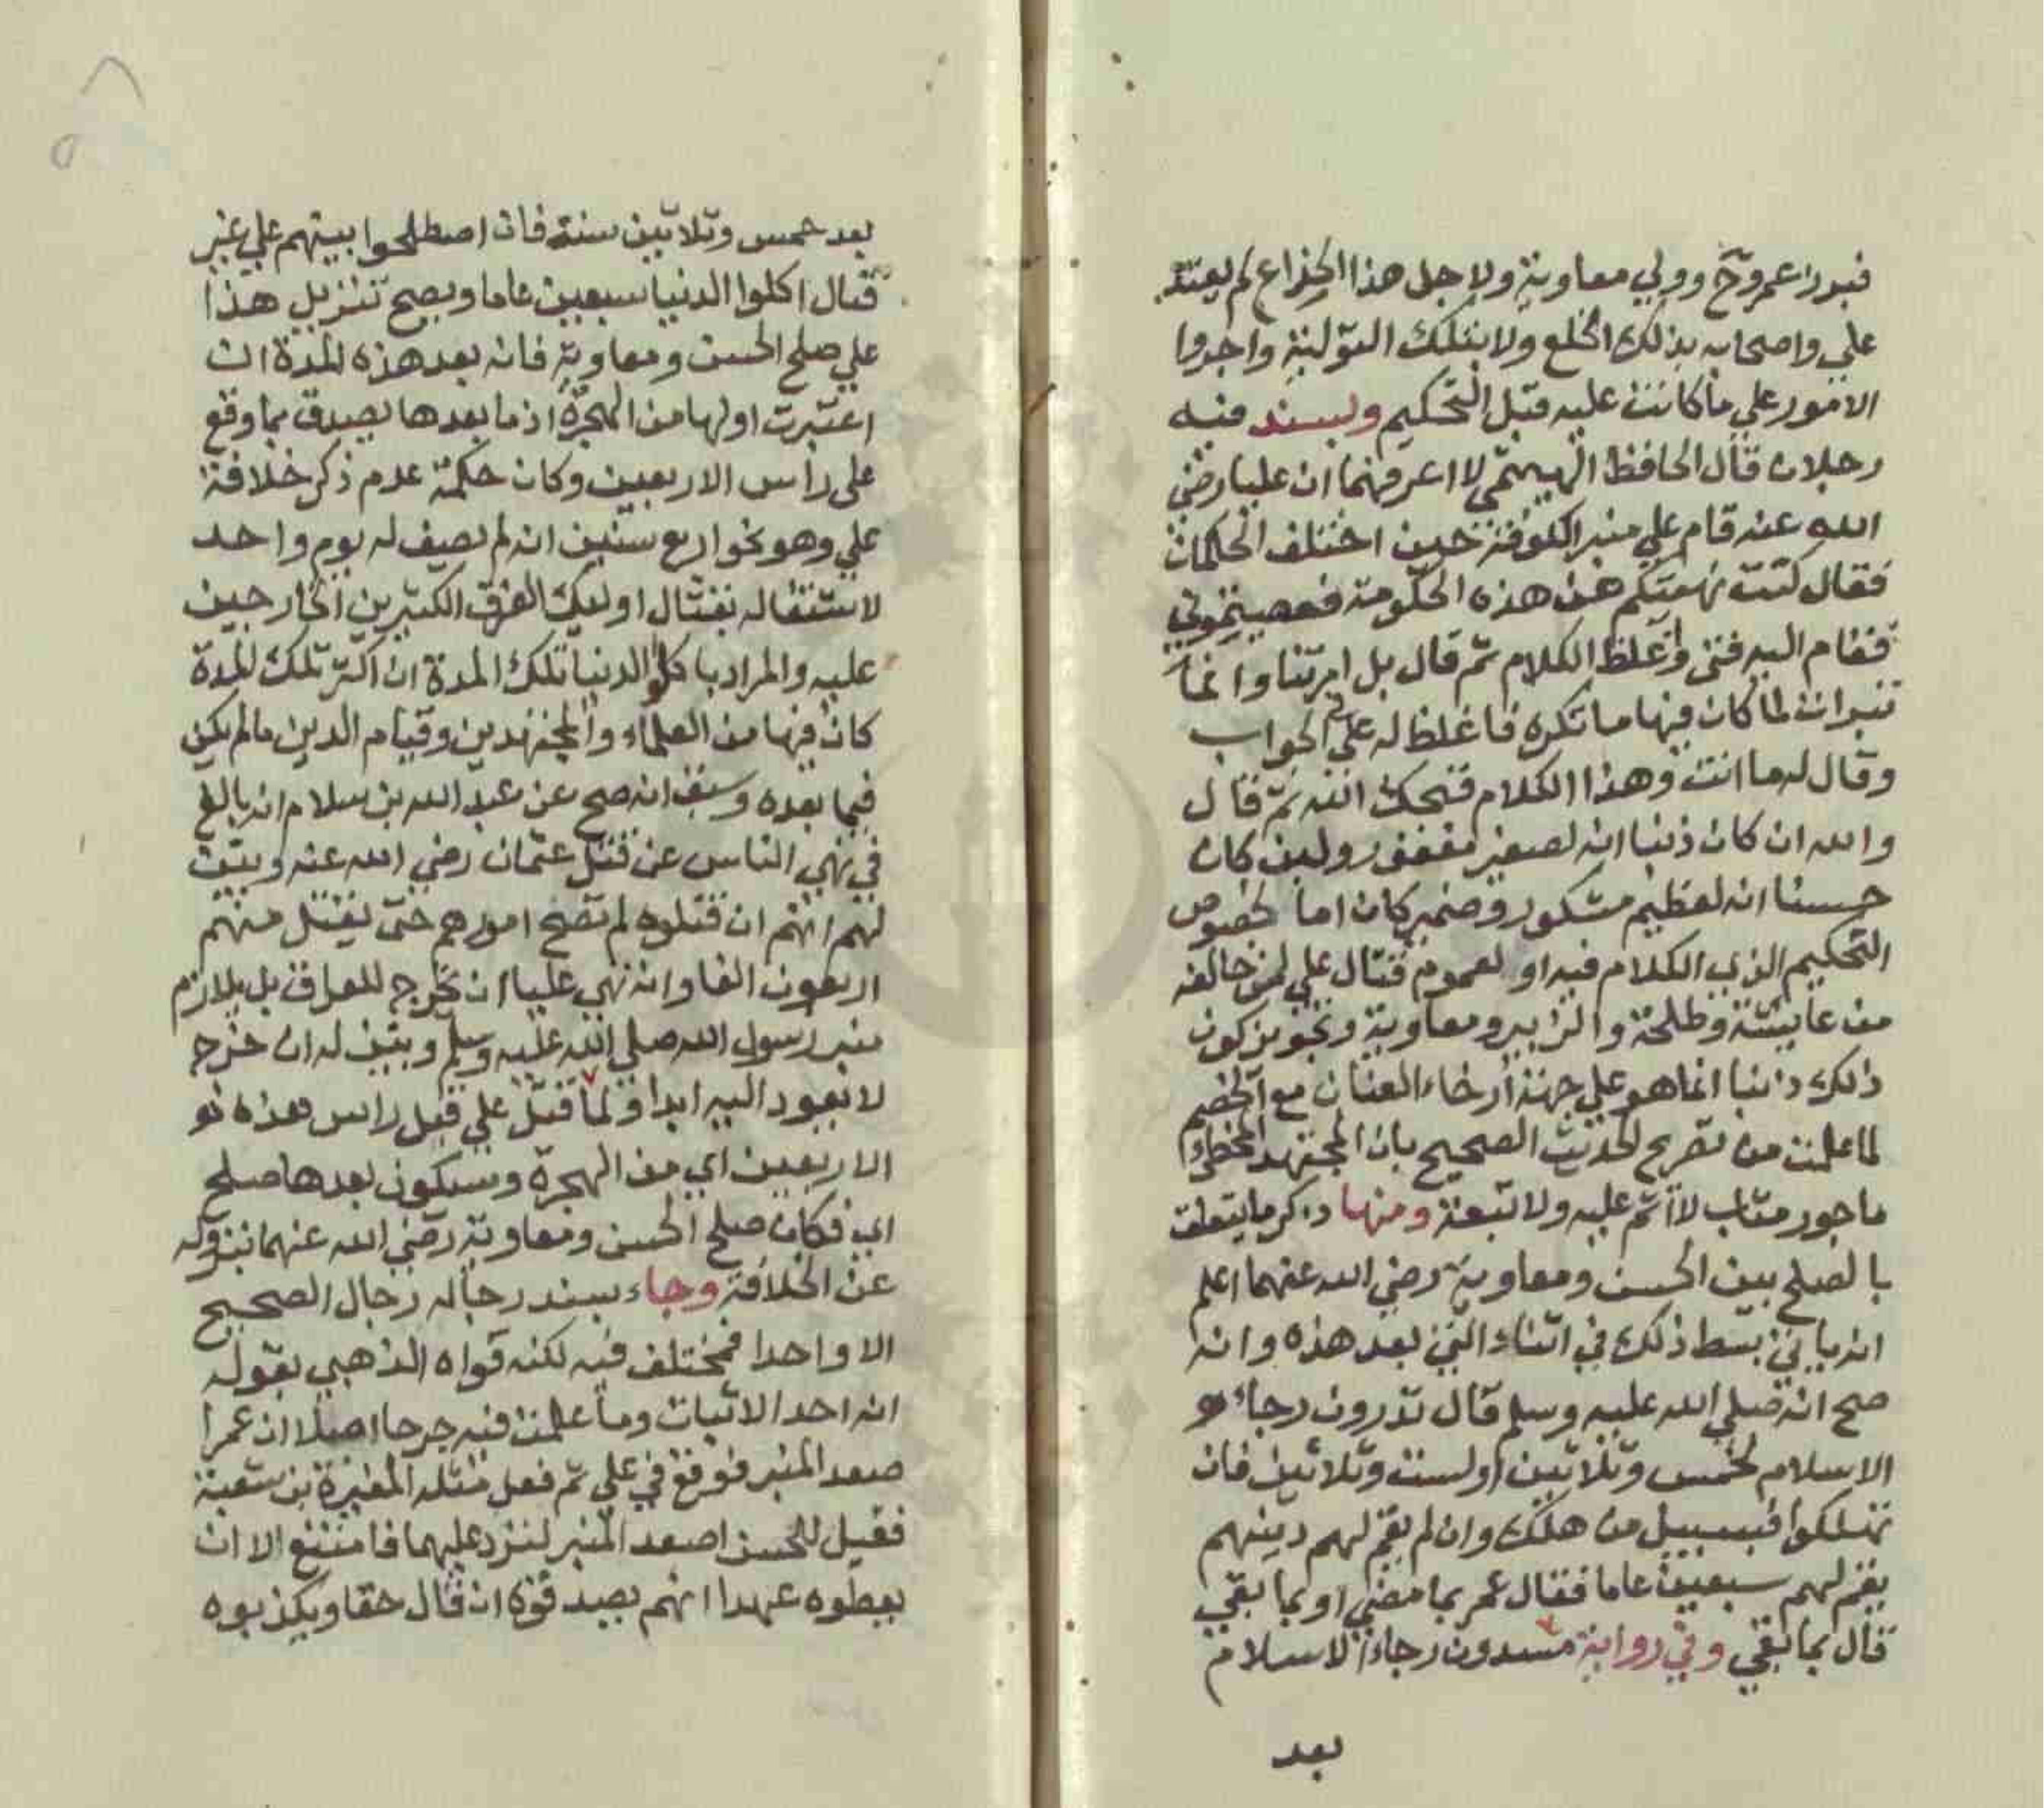 فبدر اعمرو وولي معاوية ولاجل هذا الخداع لم يعتد
علي واصحابه بذلك الخلع ولا بتلك التولية واجروا
الامور علي ما كانت عليه قبل التحكيم وبسند فيه
رجلان قال الحافظ الهيتمي لا اعرفهما ان عليا رضي
الله عنه قام علي منبر الكوفة حين اختلف الحكمان
فقال كنت نهيتكم عن هذه الحكومة فعصيتموني
فقام اليه فتي واغلظ الكلام ثم قال بل امرتنا وانما
تبرات لما كان فيها ما تكره فاغلظ له علي الجواب
وقال له ما انت وهذا الكلام قبحك الله ثم قال
والله ان كان ذنبا انه لصغير مغفور ولين كان
حسنا انه لعظيم مشكور وضمير كان اما لخصوص
التحكيم الذي الكلام فيه او لعموم قتال علي لمن خالفه
من عايشة وطلحة والزبير ومعاوية وتجويز كون
ذلك ذنبا انما هو علي جهة ارخاء العنان مع الخصم
لما علمت من تصريح الحديث الصحيح بان المجتهد المخطئ
ماجور مثاب لا اثم عليه ولا تبعة ومنها ذكر ما يتعلق
بالصلح بين الحسن ومعاوية رضي الله عنهما اعلم
انه ياتي بسط ذلك في اثناء التي بعد هذه وانه
صح انه صلي الله عليه وسلم قال تدرون رجاء
الاسلام لخمس وثلاثين او لست وثلاثين فان
تهلكوا فسبيل من هلك وان لم يقم لهم دينهم
يقم لهم سبعين عاما فقال عمر بما مضي او بما بقي
قال بما بقي وفي رواية مسدون رجاء الاسلام
بعد
بعد خمس وثلاثين سنة فان اصطلحوا بينهم علي غير
قتال اكلوا الدنيا سبعين عاما ويصح تنزيل هذا
علي صلح الحسن ومعاوية فانه بعد هذه المدة ان
اعتبرت اولها من الهجرة اذ ما بعدها يصدق بما وقع
علي راس الاربعين وكان حكمة عدم ذكر خلافة
علي وهو نحو اربع سنين انه لم يصف له يوم واحد
لاشتغاله بقتال اوليك الفرق الكثيرين الخارجين
عليه والمراد باكل الدنيا تلك المدة ان اكثر تلك المدة
كان فيها من العلماء والمجتهدين وقيام الدين ما لم يكن
فيما بعده وسبق انه صح عن عبد الله بن سلام انه بالغ
في نهي الناس عن قتل عثمان رضي الله عنه وبين
لهم انهم ان قتلوه لم تصح امورهم حتي يقتل منهم
اربعون الفا وانه نهي عليا ان يخرج للعراق بل يلازم
منبر رسول الله صلي الله عليه وسلم وبين له ان خرج
لا يعود اليه ابدا ولما قتل علي قيل راس هذه
الاربعين اي من الهجرة وسيكون بعدها صلح
اي فكان صلح الحسن ومعاوية رضي الله عنهما بنزوله
عن الخلافة وجاء بسند رجاله رجال الصحيح
الا واحدا فمختلف فيه لكنه قواه الذهبي بقوله
انه احد الاثبات وما علمت فيه جرحا اصلا ان عمرا
صعد المنبر فوقع في علي ثم فعل مثله المغيرة بن شعبة
فقيل للحسن اصعد المنبر لترد عليهما فامتنع الا ان
يعطوه عهدا انهم يصدقوه ان قال حقا ويكذبوه